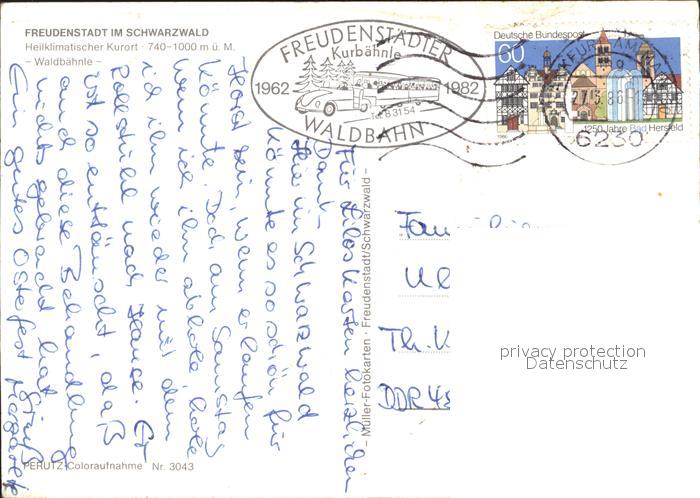 FREUDENSTADT IM SCHWARZWALD
Heilklimatischer Kurort · 740-1000 m ü. M.
- Waldbähnle -
FREUDENSTÄDTER
Kurbähnle
1962
1982
Tel. 8 31 54
WALDBAHN
Deutsche Bundespost
60
1250 Jahre Bad Hersfeld
6230
Für Eilos Karten herzlichen
Dank -
Hier im Schwarzwald
könnte es so schön für
Horst sein, wenn er laufen
könnte. Doch am Samstag
wenn ich ihn abhole, hole
ich ihn wieder mit dem
Rollstuhl nach Hause. Er
ist so enttäuscht, daß
auch diese Behandlung
nichts gebracht hat.
Ein gutes Osterfest
- Müller-Fotokarten · Freudenstadt/Schwarzwald -
Fam
Ul
Th.
DDR
privacy protection
Datenschutz
PERUTZ-Coloraufnahme Nr. 3043